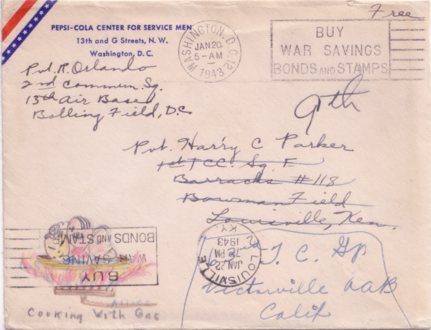 Free
PEPSI-COLA CENTER FOR SERVICE MEN
13th and G Streets, N. W.
Washington, D. C.
WASHINGTON, D.C.
JAN 20
5-AM
1943
BUY
WAR SAVINGS
BONDS AND STAMPS
Pvt. R. Orlando
2nd Commun. Sq.
15th Air Base
Bolling Field, D.C
9th
Pvt. Harry C Parker
1st TCC. Sq. F
Barracks #118
Bowman Field
Louisville, Ken.
LOUISVILLE
KY
JAN 22
1943
BUY
WAR SAVINGS
BONDS AND STAMPS
T. C. Gp
Victorville AAB
Calif
Cooking With Gas